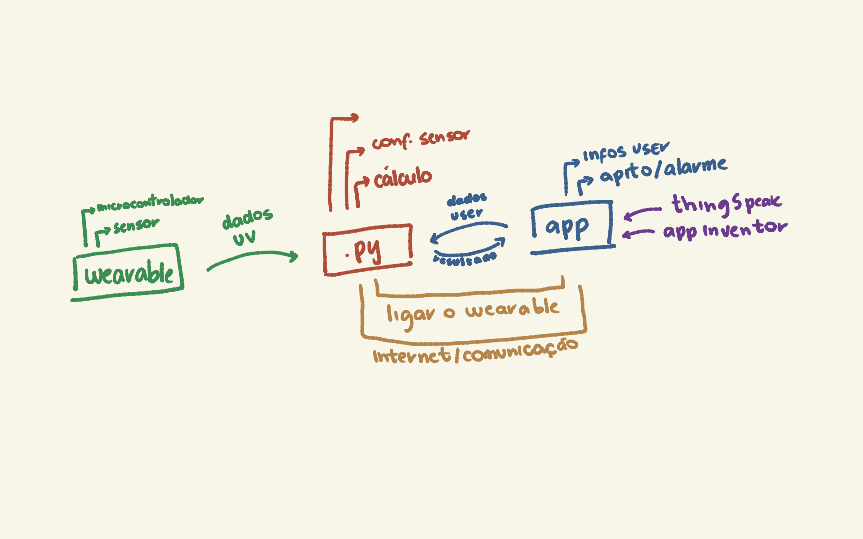 microcontrolador
sensor
wearable
dados
UV
conf. sensor
cálculo
.py
dados
user
resultado
infos user
apito/alarme
app
thingSpeak
app inventor
ligar o wearable
internet/comunicação